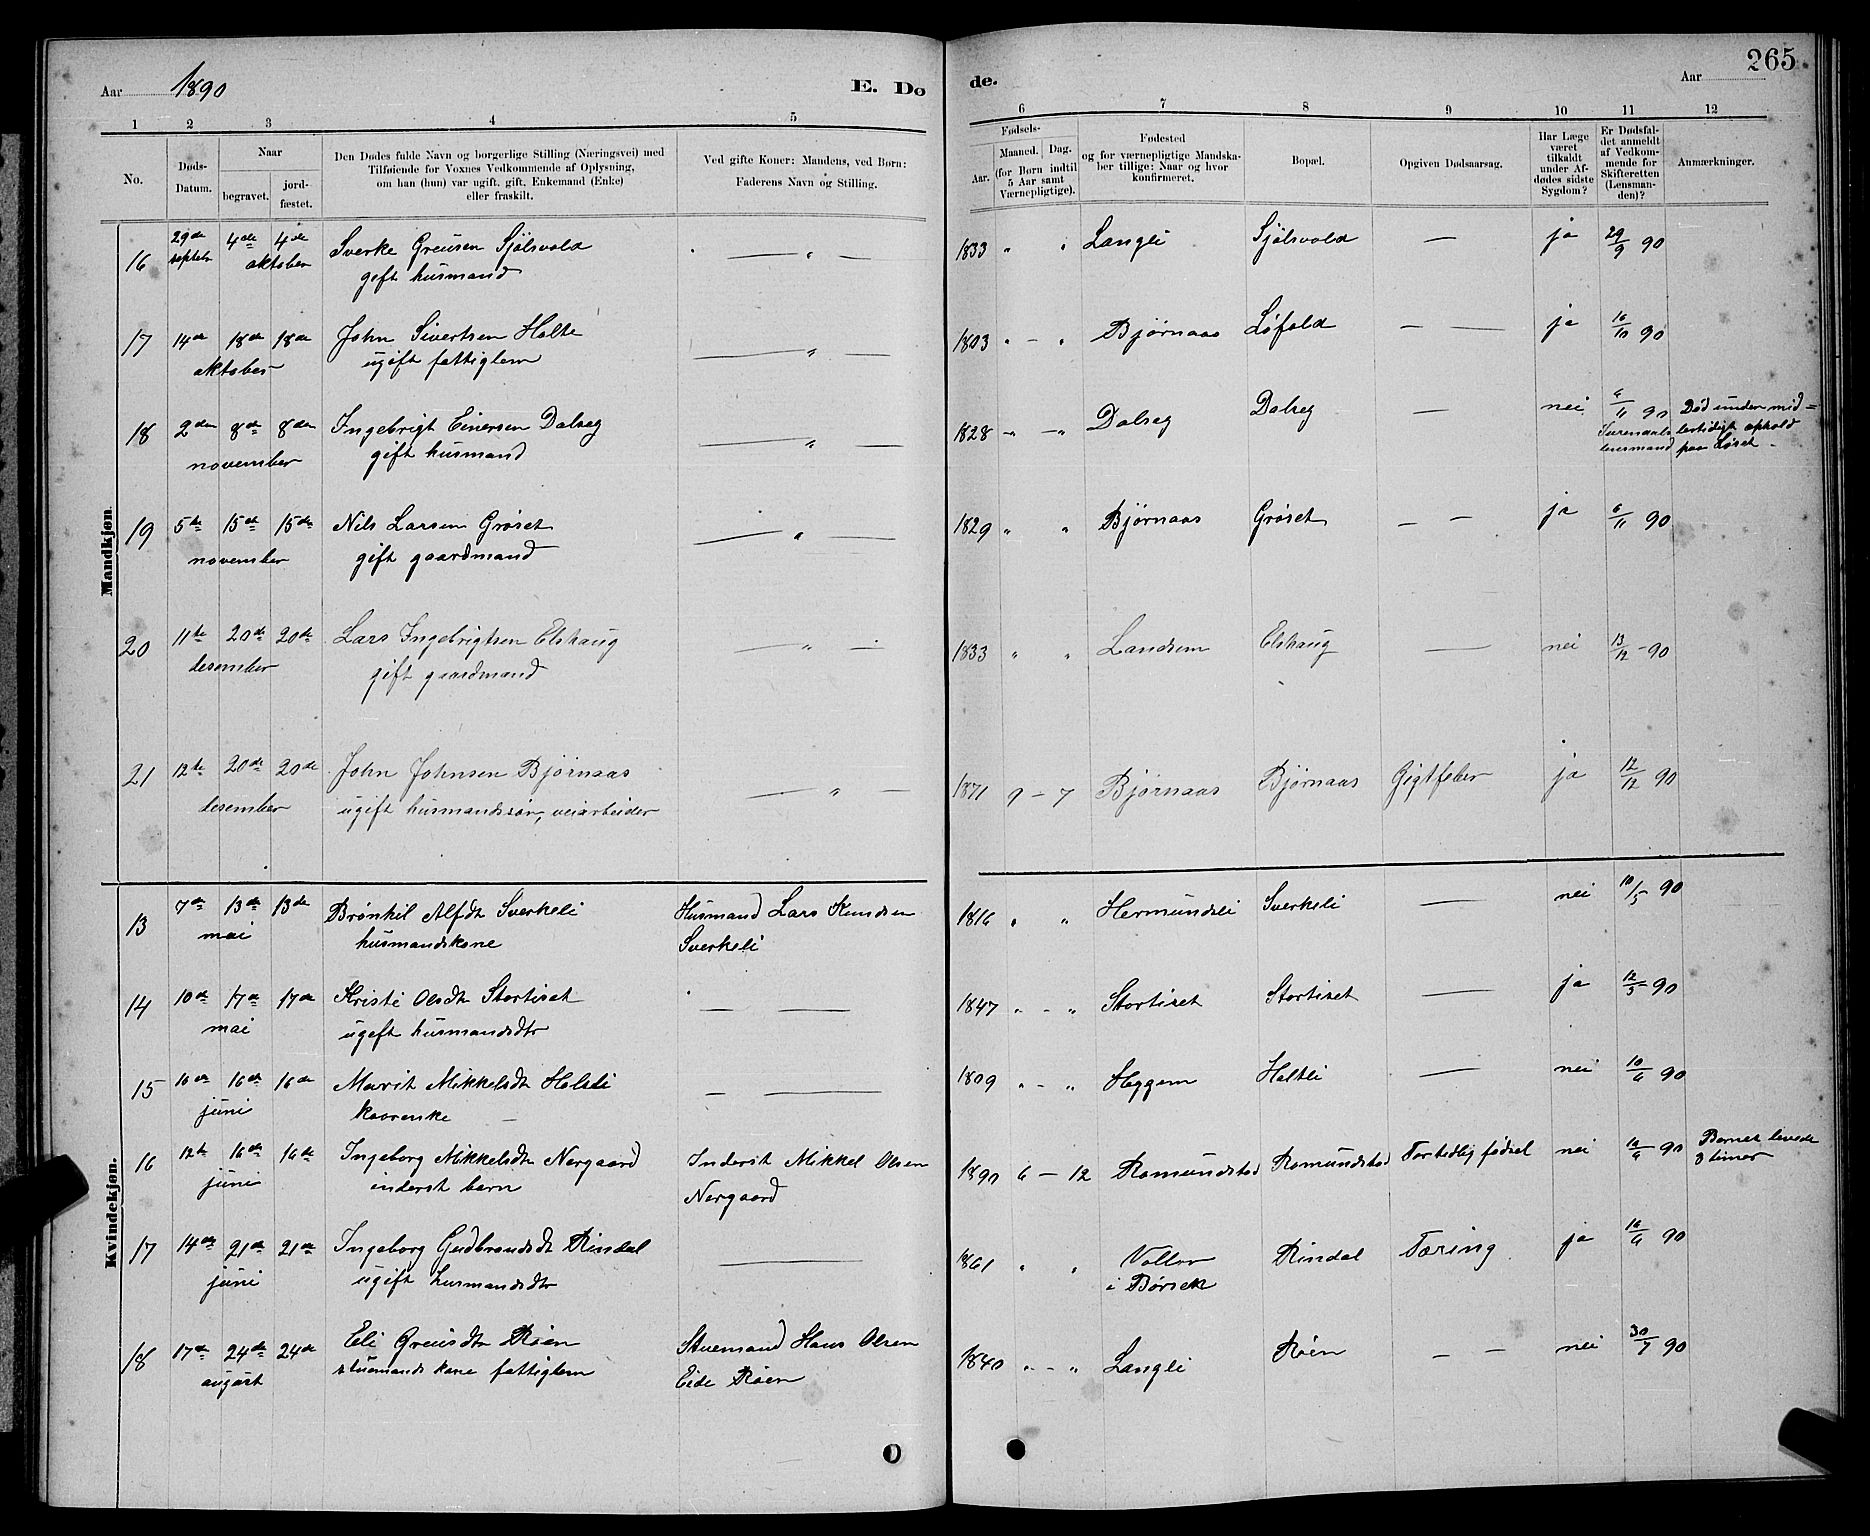 Aar 1890 E. Do
1 2 3 4 5
No. Døds-Datum. Naar begravet. jordfæstet. Den Dødes fulde Navn og borgerlige Stilling (Næringsvei) med Tilføiende for Voxnes Vedkommende af Oplysning, om han (hun) var ugift, gift, Enkemand (Enke) eller fraskilt. Ved gifte Koner: Mandens, ved Børn: Faderens Navn og Stilling.
Mandkjøn.
16 29de septbr 4de 4de oktober Sverke Greusen Sjølsvold
gift husmand
17 14de 18de 18de oktober John Sivertsen Holte
ugift fattiglem
18 2den 8de 8de november Ingebrigt Einersen Dalseg
gift husmand
19 5te 15de 15de november Nils Larsen Grøset
gift gaardmand
20 11te 20de 20de desember Lars Ingebrigtsen Elshaug
gift gaardmand
21 12te 20de 20de desember John Johnsen Bjørnaas
ugift husmandssøn, veiarbeider
Kvindekjøn.
13 7de 13de 13de mai Brønhil Alfdtr Sverkeli Husmand Lars Knudsen
husmandskone Sverkeli
14 10de 17de 17de mai Kristi Olsdtr Stortiset
ugift husmandsdtr
15 10de 16de 16de juni Marit Mikkelsdtr Holtli
kaarenke
16 12te 16de 16de juni Ingeborg Mikkelsdtr Nergaard Inderst Mikkel Olsen
inderst barn Nergaard
17 14de 21de 21de juni Ingeborg Gudbrandsdtr Rindal
ugift husmandsdtr
18 17de 24de 24de august Eli Greusdtr Røen Stuemand Hans Olsen
stuemands kone fattiglem Eide Røen
de. Aar 265
6 7 8 9 10 11 12
Fødsels- Aar. Maaned. Dag. (for Børn indtil 5 Aar samt Værnepligtige). Fødested og for værnepligtige Mandskaber tillige: Naar og hvor konfirmeret. Bopæl. Opgiven Dødsaarsag. Har Læge været tilkaldt under Afdødes sidste Sygdom? Er Dødsfaldet anmeldt af Vedkommende for Skifteretten (Lensmanden)? Anmærkninger.
1833 " " Langli Sjølsvold — ja 29/9 90
1803 " - " Bjørnaas Løfald — — ja 16/10 90
1828 - - " Dalseg Dalseg — nei 4/11 90 Død under mid=
Surendals lensmand lertidigt ophold
paa Løset.
1829 " " Bjørnaas Grøset — — ja 6/11 90
1833 " " Landsem Elshaug — nei 13/12 - 90
1871 9 - 7 Bjørnaas Bjørnaas Gigtfeber ja 12/12 90
1816 " " Hermundsli Sverkeli — nei 10/5 90
1847 " - " Stortiset Stortiset — ja 12/5 - 90
1809 " - " Heggem Holtli — nei 10/6 90
1890 6 - 12 Romundstad Romundstad Fortidlig fødsel nei 14/6 - 90 Barnet levede
8 timer
1861 " " Vollor Rindal Tæring ja 16/6 90
i Børsek
1840 " - " Langli Røen — — nei 30/7 90